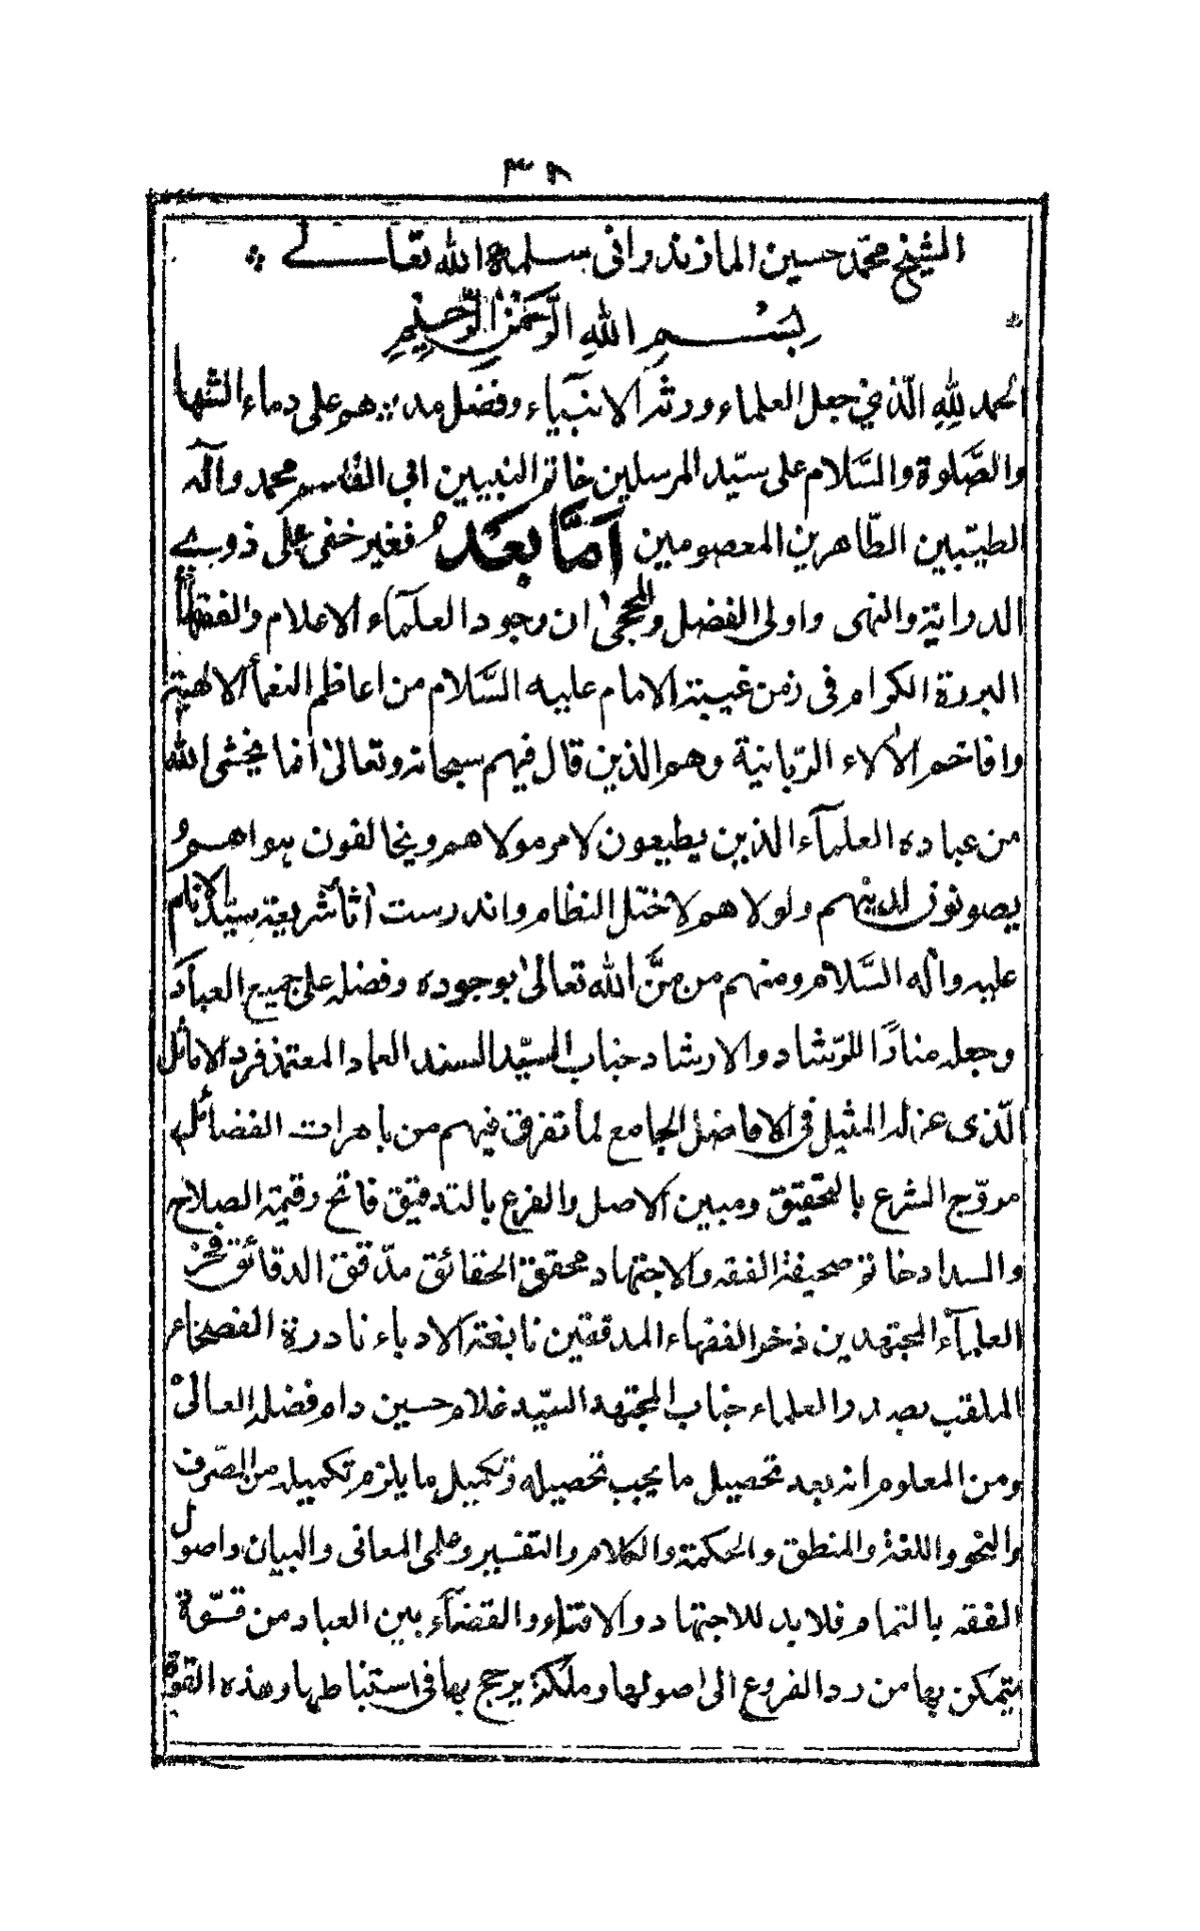 ٣٨
الشيخ محمّد حسين المازندرانى سلمه الله تعالے
بِسْمِ اللهِ الرَّحمٰنِ الرَّحِيمِ
الحمد لِلهِ الّذي جعل العلماء ورثة الانبيَاء وفضّل مدادهم على دماء الشهدا
والصَّلوة والسَّلام على سيّد المرسلين خاتم النبيين ابي القاسم محمد وآله
الطيّبين الطّاهرين المعصومين اَمَّا بَعَد فغير خفى على ذوے
الدراية والنهى واولى الفضل والحجىٰ ان وجود العلمآء الاعلام والفقهاء
البررة الكرام فى زمن غيبة الامام عليه السَّلام من اعاظم النعمأ الالهية
وافاخم الاٰلاء الربّانية وهم الذين قال فيهم سبحانه وتعالىٰ انما يخشى الله
من عباده العلمآء الذين يطيعون لامر مولاهم ويخالفون هواهم
يصونون لدينهم ولولاهم لاختل النظام واندرست اثأ شريعة سيّد الانام
عليه وآله السَّلام ومنهم من منَّ الله تعالىٰ بوجوده وفضله على جميع العباد
وجعله منارًا للرّشاد والارشاد جناب السيّد السند العماد المعتمد فرد الاماثل
الّذى عز له المثيل فى الافاضل الجامع لما تفرق فيهم من باهرات الفضائل
مروّج الشرع بالتحقيق ومبين الاصل والفرع بالتدقيق فاتح رقيمة الصلاح
والسداد خاتم صحيفة الفقه والاجتهاد محقق الحقائق مدّقق الدقائق فخر
العلمآء المجتهدين ذخر الفقهاء المدققين نابغة الادباء نادرة الفصحاء
الملقب بصدر العلماء جناب المجتهد السيّد غلام حسين دام فضله العالىٰ
ومن المعلوم انه بعد تحصيل ما يجب تحصيله وتكميل ما يلزم تكميله من الصّرف
والنحو واللغة والمنطق والحكمة والكلام والتفسير وعلمى المعانى والبيان واصول
الفقه بالتمام فلا بد للاجتهاد والافتاء والقضآء بين العباد من قوّة
يتمكن بها من رد الفروع الى اصولها وملكة يرجح بها فى استنباطها وهذه القوة